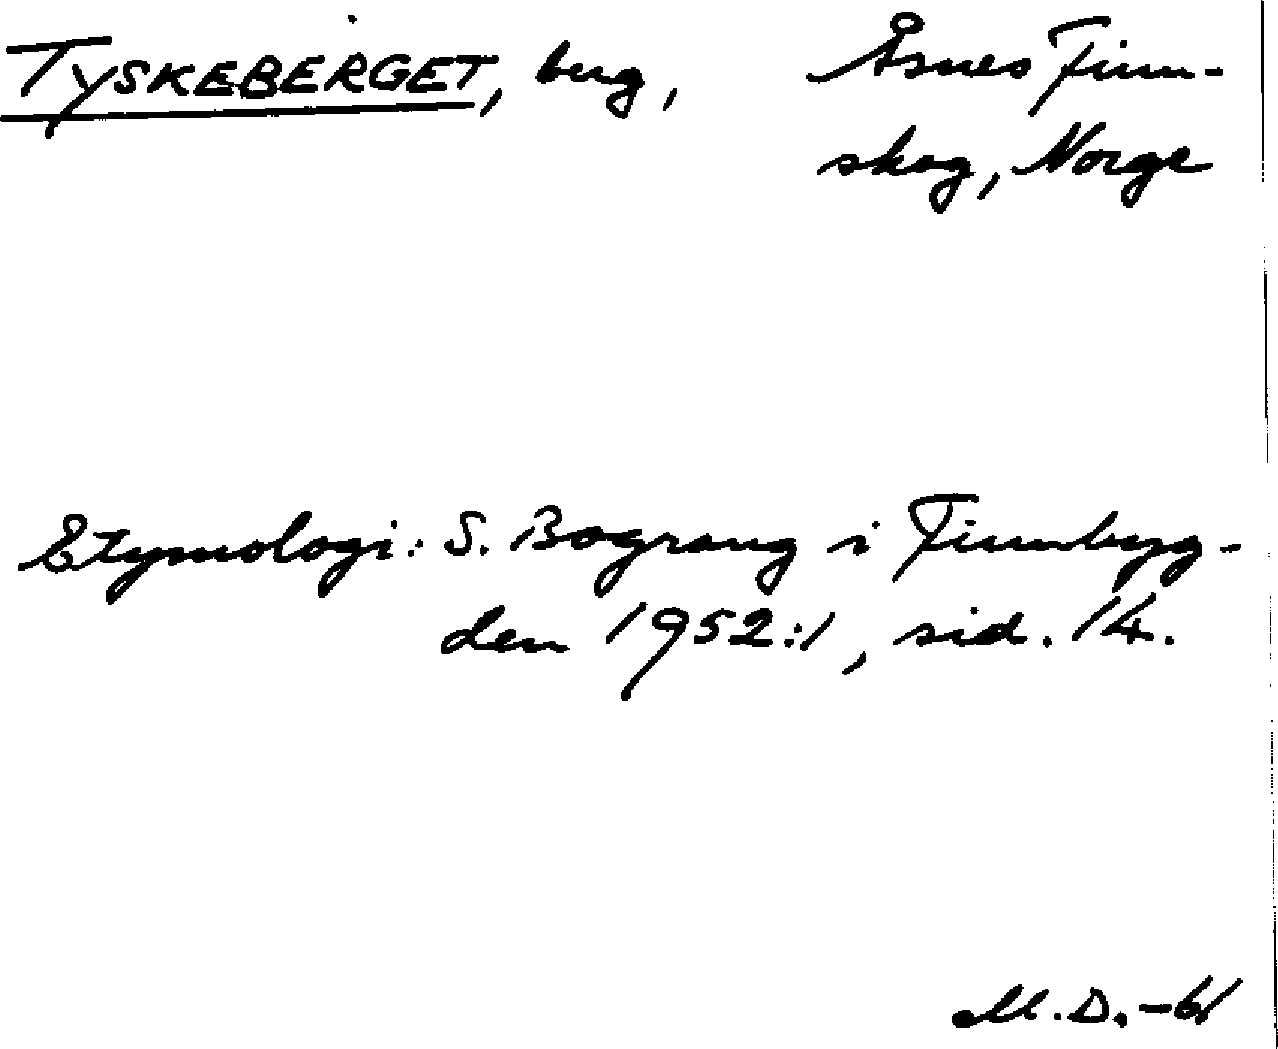 TYSKEBERGET, berg, Åsnes Finn-
skog, Norge
Etymologi: S. Bograng i Finnbyg-
den 1952:1, sid. 14.
M.D.-61